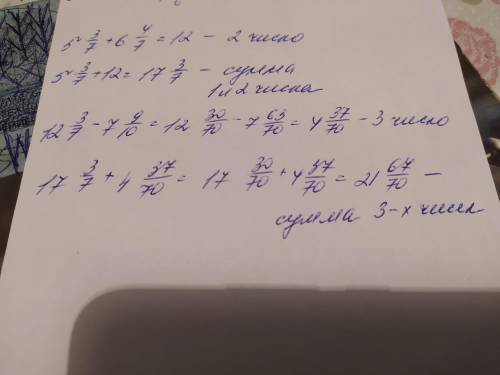 5 3/7 + 6 4/7 = 12 – 2 число
5 3/7 + 12 = 17 3/7 – сумма
1 и 2 числа
12 3/7 - 7 9/10 = 12 30/70 - 7 63/70 = 4 37/70 – 3 число
17 3/7 + 4 37/70 = 17 30/70 + 4 37/70 = 21 67/70 –
сумма 3-х чисел